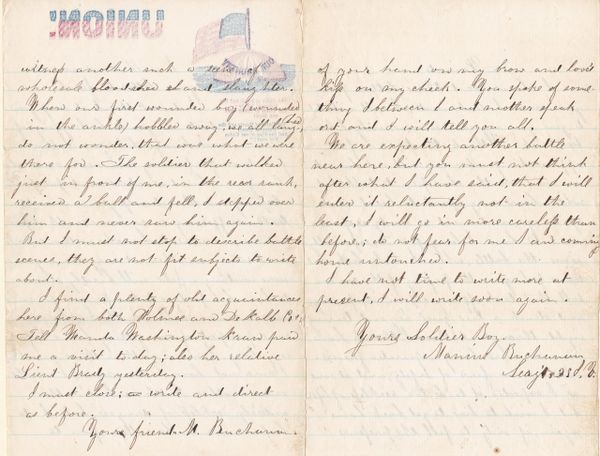 UNION!
witness another such a scene
wholesale bloodshed and slaughter.
When our first wounded boy (wounded
in the ankle) hobbled away, we all laug-
hed
do not wonder, that was what we were
there for. The soldier that walked
just in front of me, in the rear rank,
received a ball and fell, I stepped over
him and never saw him again.
But I must not stop to describe battle
scenes, they are not fit subjects to write
about.
I find a plenty of old acquaintances
here from both Holmes and De Kalb Cos.
Tell Washington paid
me a visit to day; also her relative
Lieut Brady yesterday.
I must close; write and direct
as before.
Yours friend M. Buchanan.
of your hand on my brow and love's
kiss on my cheek. You spoke of some-
thing between I and mother speak
out and I will tell you all.
We are expecting another battle
near here, but you must not think
after what I have said, that I will
enter it reluctantly not in the
least, I will go in more careless than
before; do not fear for me I am coming
home untouched.
I have not time to write more at
present, I will write soon again.
Yours Soldier Boy.
Buchanan